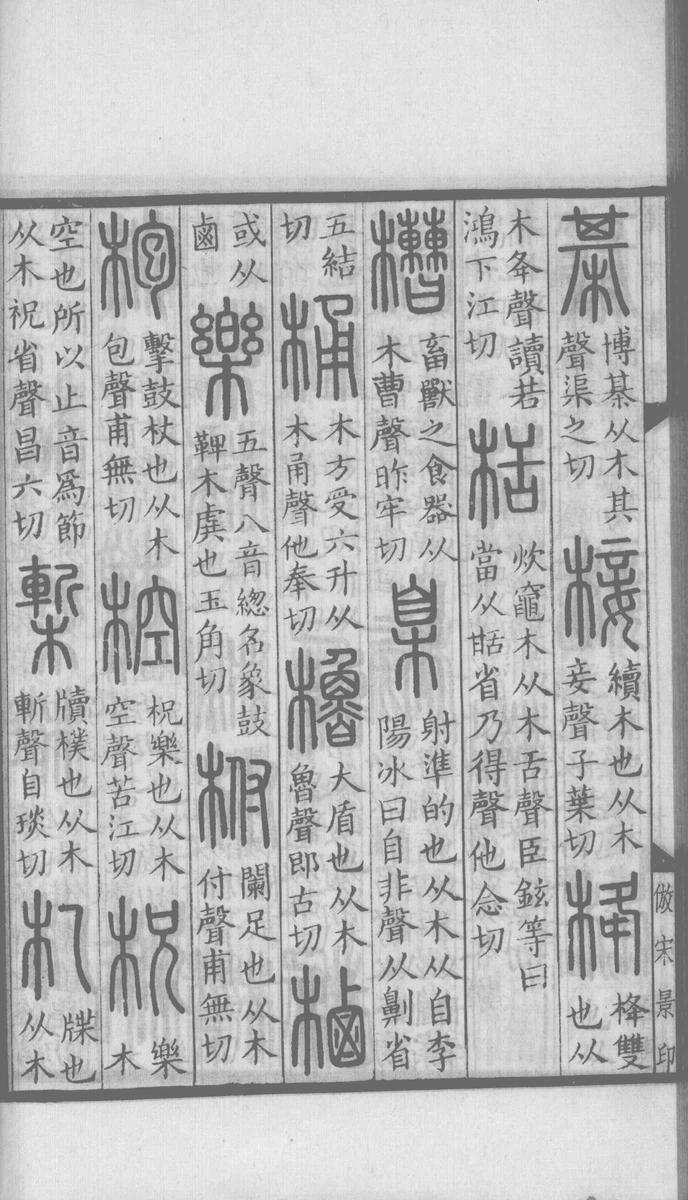 棊博棊从木其聲渠之切椄續木也从木妾聲子葉切栙栙雙也从
木夅聲讀若鴻下江切栝炊竈木从木舌聲臣鉉等曰當从甛省乃得聲他念切
槽畜獸之食器从木曹聲昨牢切臬射準的也从木从自李陽冰曰自非聲从劓省
五結切桶木方受六升从木甬聲他奉切櫓大盾也从木魯聲郎古切樐
或从鹵樂五聲八音緫名象鼓鞞木虡也玉角切柎闌足也从木付聲甫無切
枹擊鼓杖也从木包聲甫無切椌柷樂也从木空聲苦江切柷樂木
空也所以止音爲節从木祝省聲昌六切槧牘樸也从木斬聲自琰切札牒也从木
倣宋景印